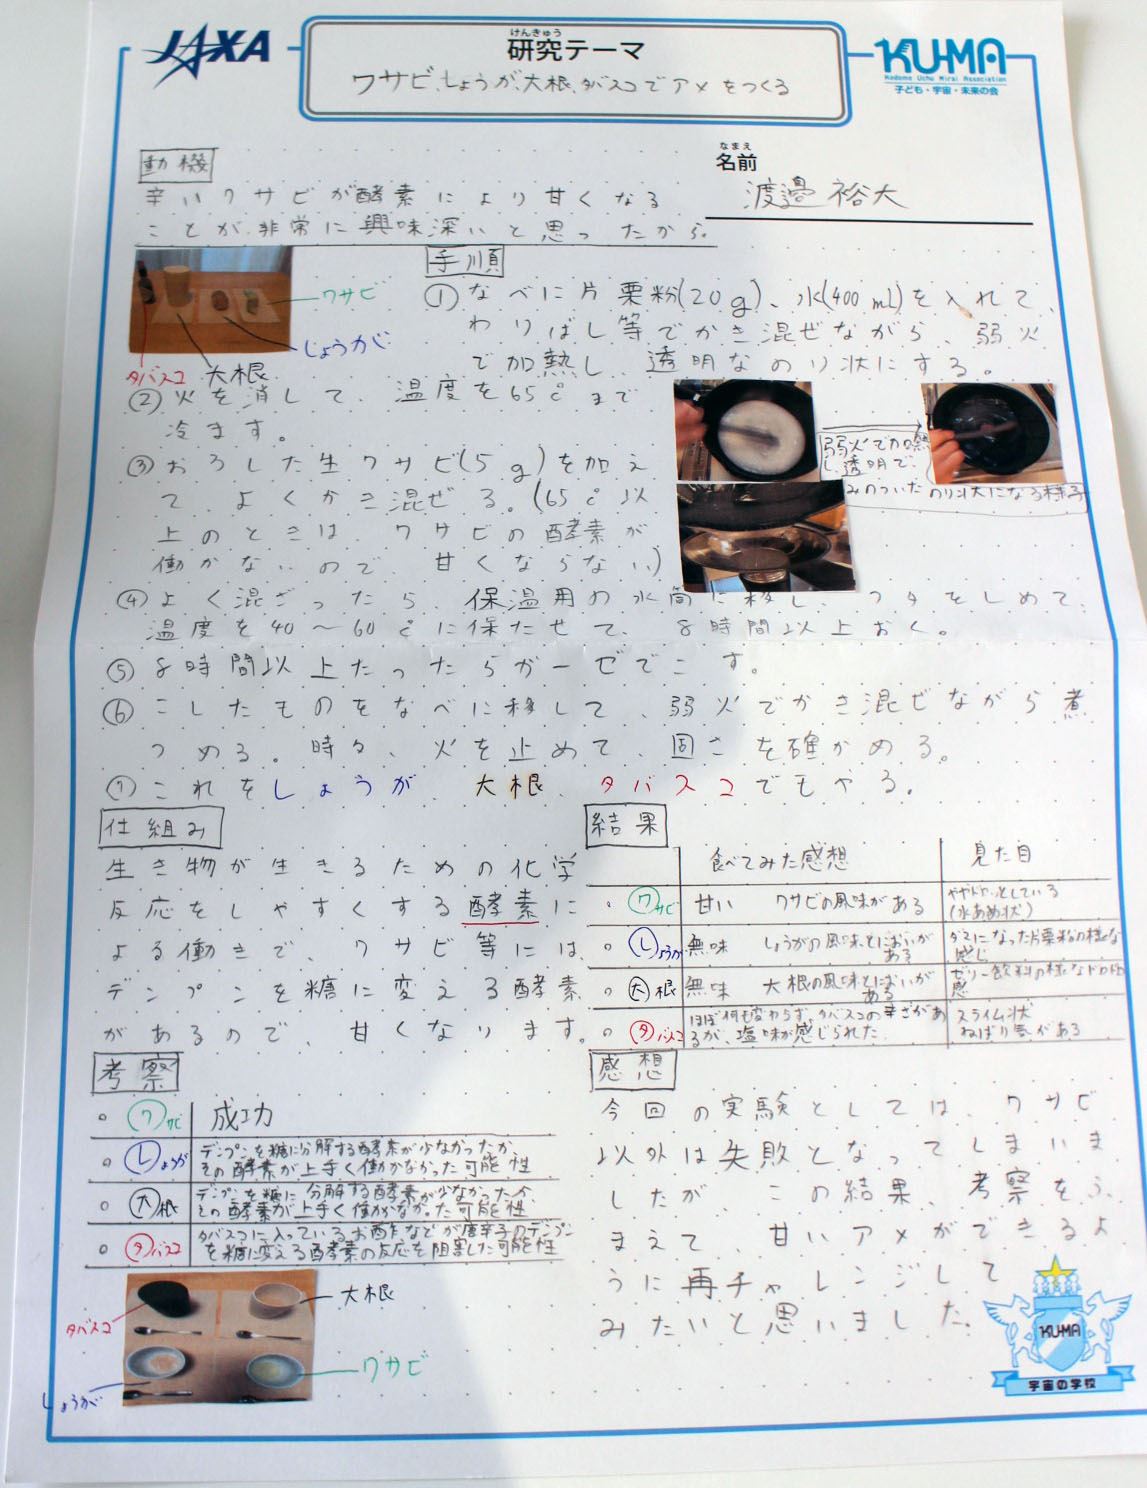 JAXA
けんきゅう
研究テーマ
ワサビ、しょうが、大根、タバスコでアメをつくる
KU-MA
Kodomo Uchu Mirai Association
子ども・宇宙・未来の会
なまえ
名前
渡邉 裕大
動機
辛いワサビが酵素により甘くなる
ことが、非常に興味深いと思ったから。
ワサビ
しょうが
タバスコ 大根
手順
①なべに片栗粉(20g)、水(400ml)を入れて
わりばし等でかき混ぜながら、弱火
で加熱し、透明なのり状にする。
②火を消して、温度を65℃まで
冷ます。
弱火で加熱
し、透明で、
みのついたのり状になる様子
③おろした生ワサビ(5g)を加え
て、よくかき混ぜる。(65℃以
上のときは、ワサビの酵素が
働かないので、甘くならない)
④よく混ざったら、保温用の水筒に移し、フタをしめて、
温度を40〜60℃に保たせて、8時間以上おく。
⑤8時間以上たったらガーゼでこす。
⑥こしたものをなべに移して、弱火でかき混ぜながら煮
つめる。時々、火を止めて、固さを確かめる。
⑦これをしょうが、大根、タバスコでもやる。
仕組み
生き物が生きるための化学
反応をしやすくする酵素に
よる働きで、ワサビ等には、
デンプンを糖に変える酵素
があるので、甘くなります。
結果
食べてみた感想 見た目
ワサビ 甘い ワサビの風味がある ややドロッとしている
(水あめ状)
しょうが 無味 しょうがの風味とにおいが
ある ダマになった片栗粉の様な
感じ
大根 無味 大根の風味とにおいが
ある ゼリー飲料の様なドロドロ
感
タバスコ ほぼ何も変わらず、タバスコの辛さがあ
るが、塩味が感じられた。 スライム状
ねばり気がある
考察
ワサビ 成功
しょうが デンプンを糖に分解する酵素が少なかったか、
その酵素が上手く働かなかった可能性
大根 デンプンを糖に分解する酵素が少なかったか、
その酵素が上手く働かなかった可能性
タバスコ タバスコに入っているお酢などが唐辛子のデンプン
を糖に変える酵素の反応を阻害した可能性
大根
タバスコ
ワサビ
しょうが
感想
今回の実験としては、ワサビ
以外は失敗となってしまいま
したが、この結果、考察をふ
まえて、甘いアメができるよ
うに再チャレンジして
みたいと思いました。
KU-MA
宇宙の学校